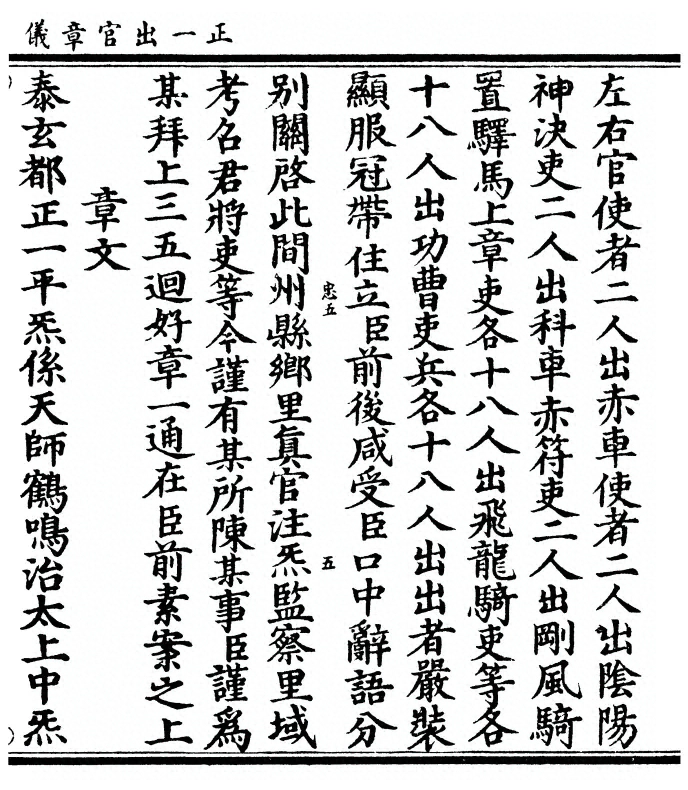 正一出官章儀
左右官使者二人出赤車使者二人出陰陽
神決吏二人出科車赤符吏二人出剛風騎
置驛馬上章吏各十八人出飛龍騎吏等各
十八人出功曹吏兵各十八人出出者嚴裝
顯服冠帶住立臣前後咸受臣口中辭語分
忠五
五
别關啓此間州縣鄉里真官注炁監察里域
考名君將吏等今謹有某所陳某事臣謹爲
某拜上三五迴好章一通在臣前素案之上
章文
泰玄都正一平炁係天師鶴鳴治太上中炁